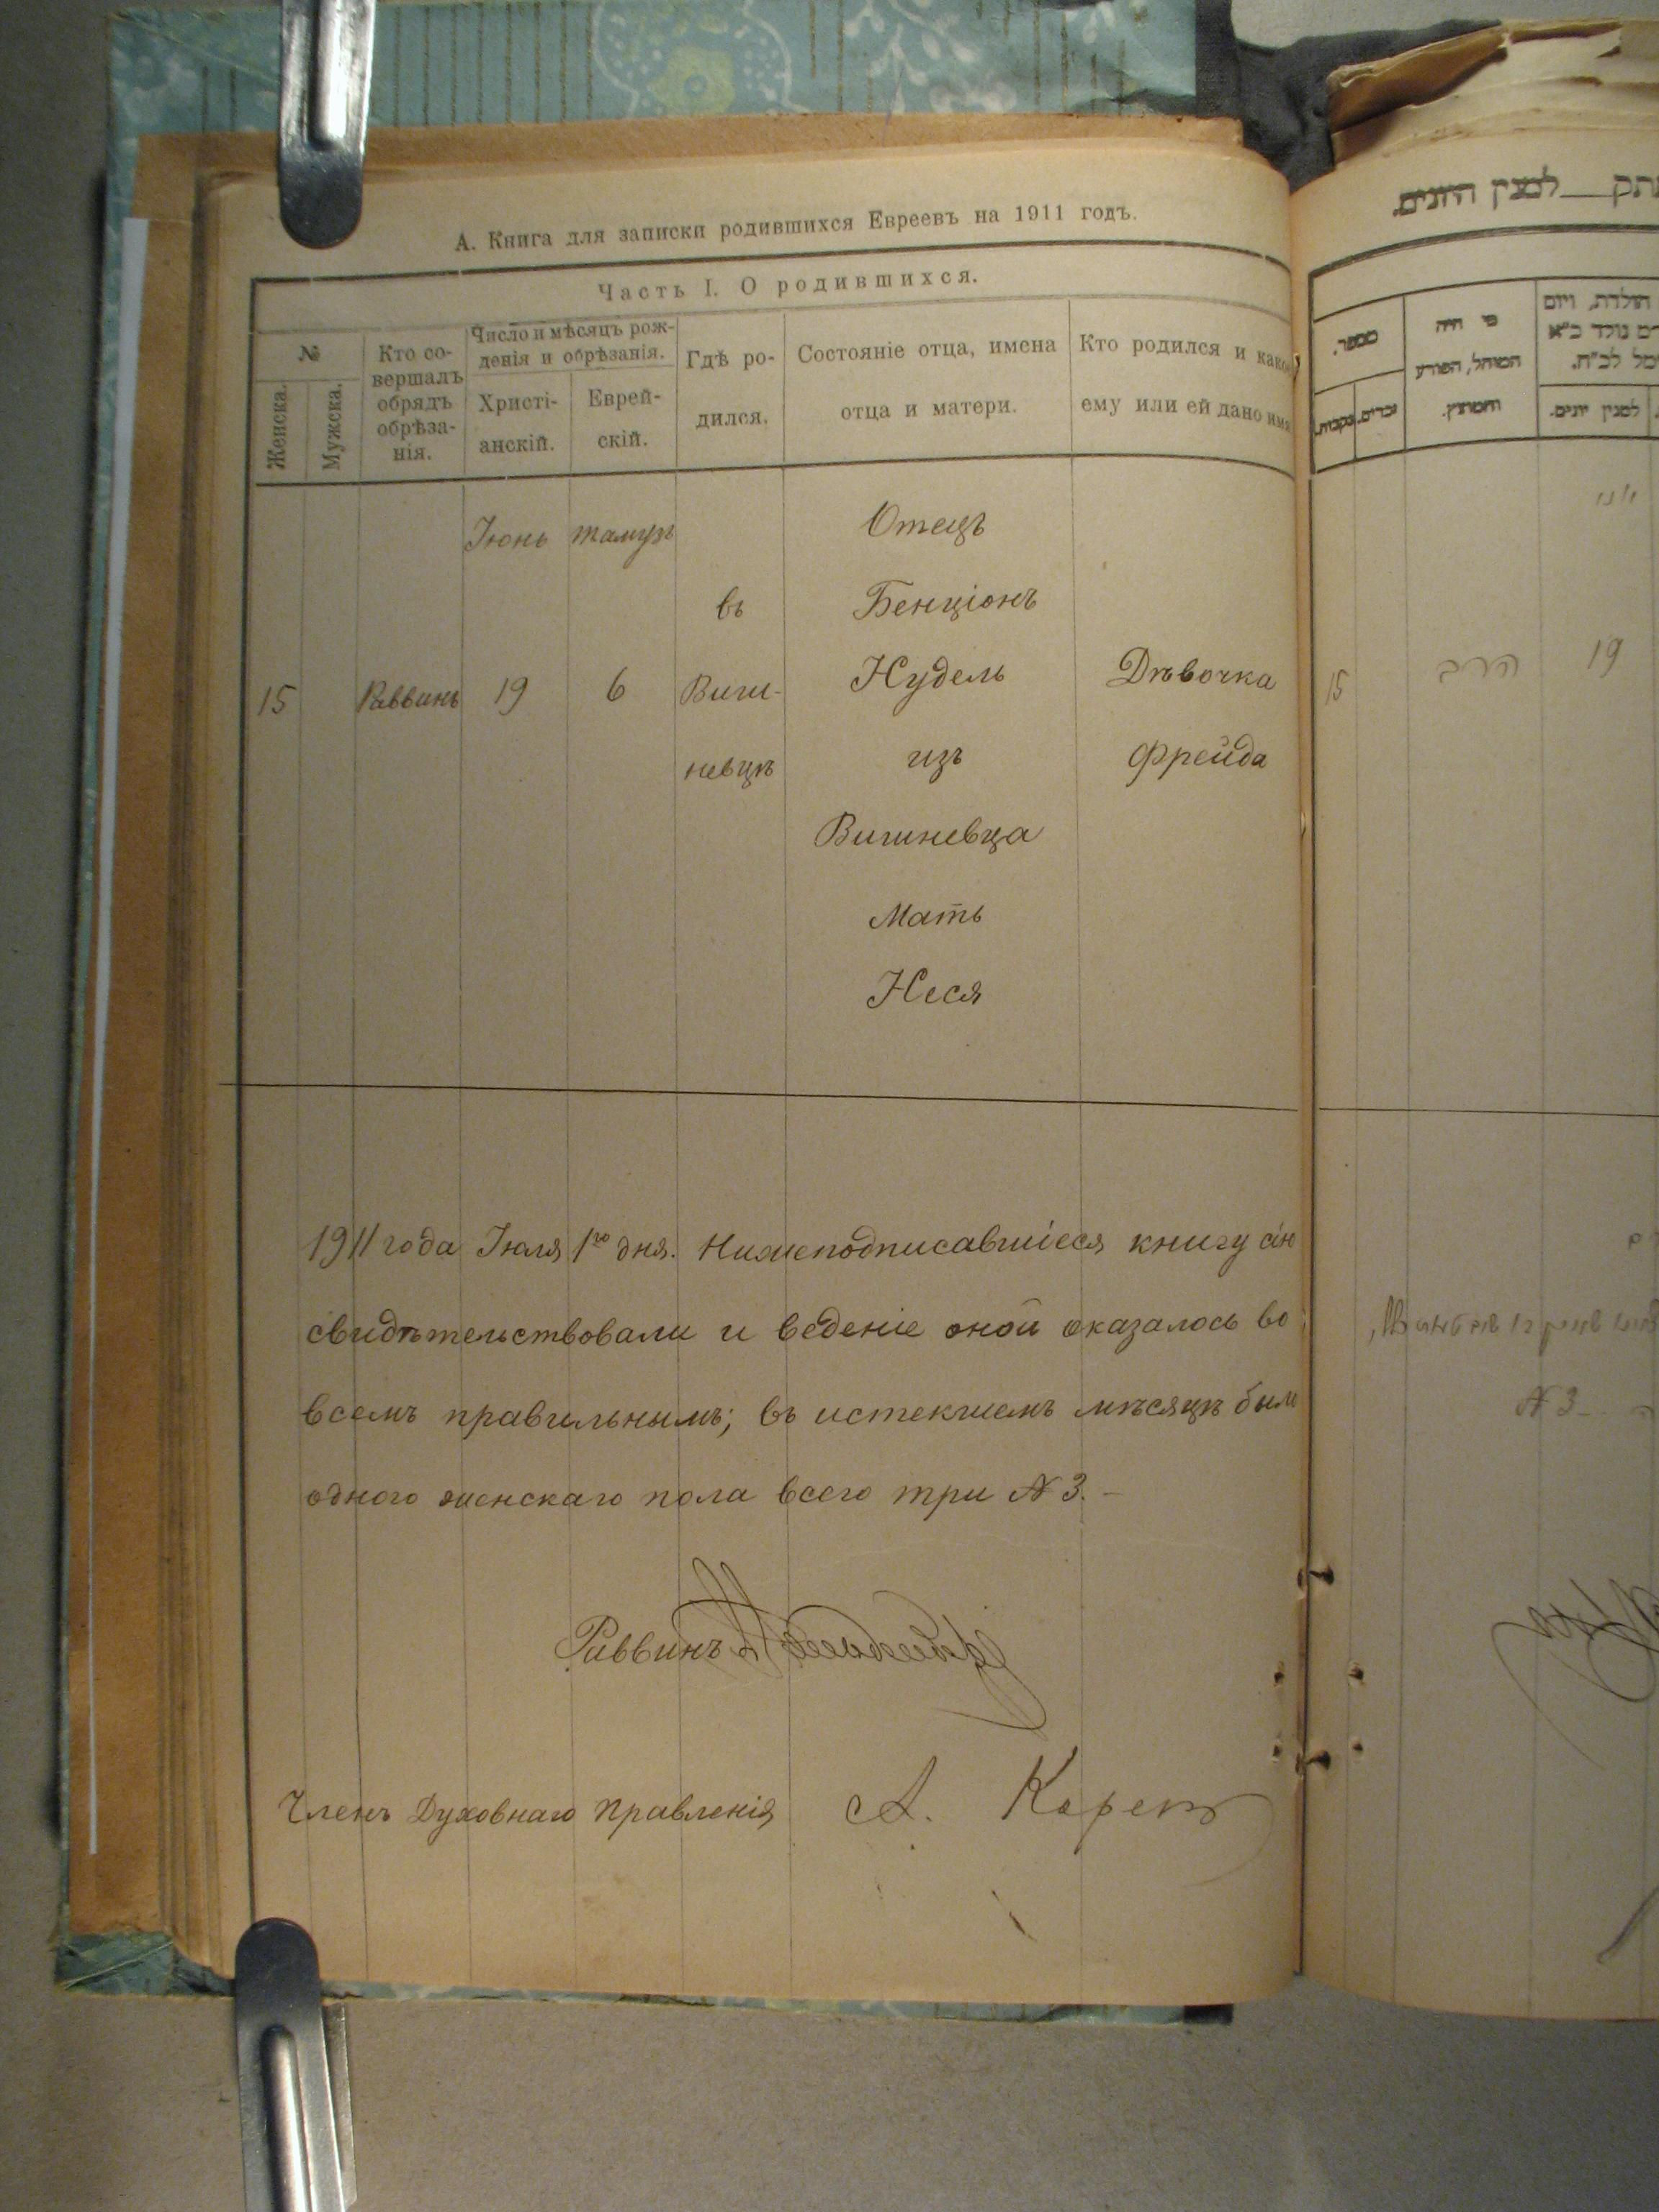 А. Книга для записки родившихся Евреевъ на 1911 годъ.
Часть I. О родившихся.
№
Женска.
Мужска.
Кто со-
вершалъ
обрядъ
обрѣза-
нія.
Число и мѣсяцъ рож-
денія и обрѣзанія.
Христі-
анскій.
Еврей-
скій.
Гдѣ ро-
дился.
Состояніе отца, имена
отца и матери.
Кто родился и како
ему или ей дано имя
Іюнь тамузъ
15 Раввинъ 19 6
въ
Виш-
невцѣ
Отецъ
Бенціонъ
Нудель
изъ
Вишневца
Мать
Неся
Дѣвочка
Фрейда
1911 года Іюля 1го дня. Нижеподписавшіеся книгу сію
свидѣтельствовали и веденіе оной оказалось во
всемъ правильнымъ; въ истекшемъ мѣсяцѣ было
одного женскаго пола всего три № 3. —
Раввинъ
Членъ Духовнаго Правленія А. Корен
למנין היונים.
מספר.
נקבות.
זכרים.
מי היה
המוהל, הפורע
והמוצץ.
הולדת, ויום
נולד ב"א
למנין יונים.
15 הרב 19
№ 3